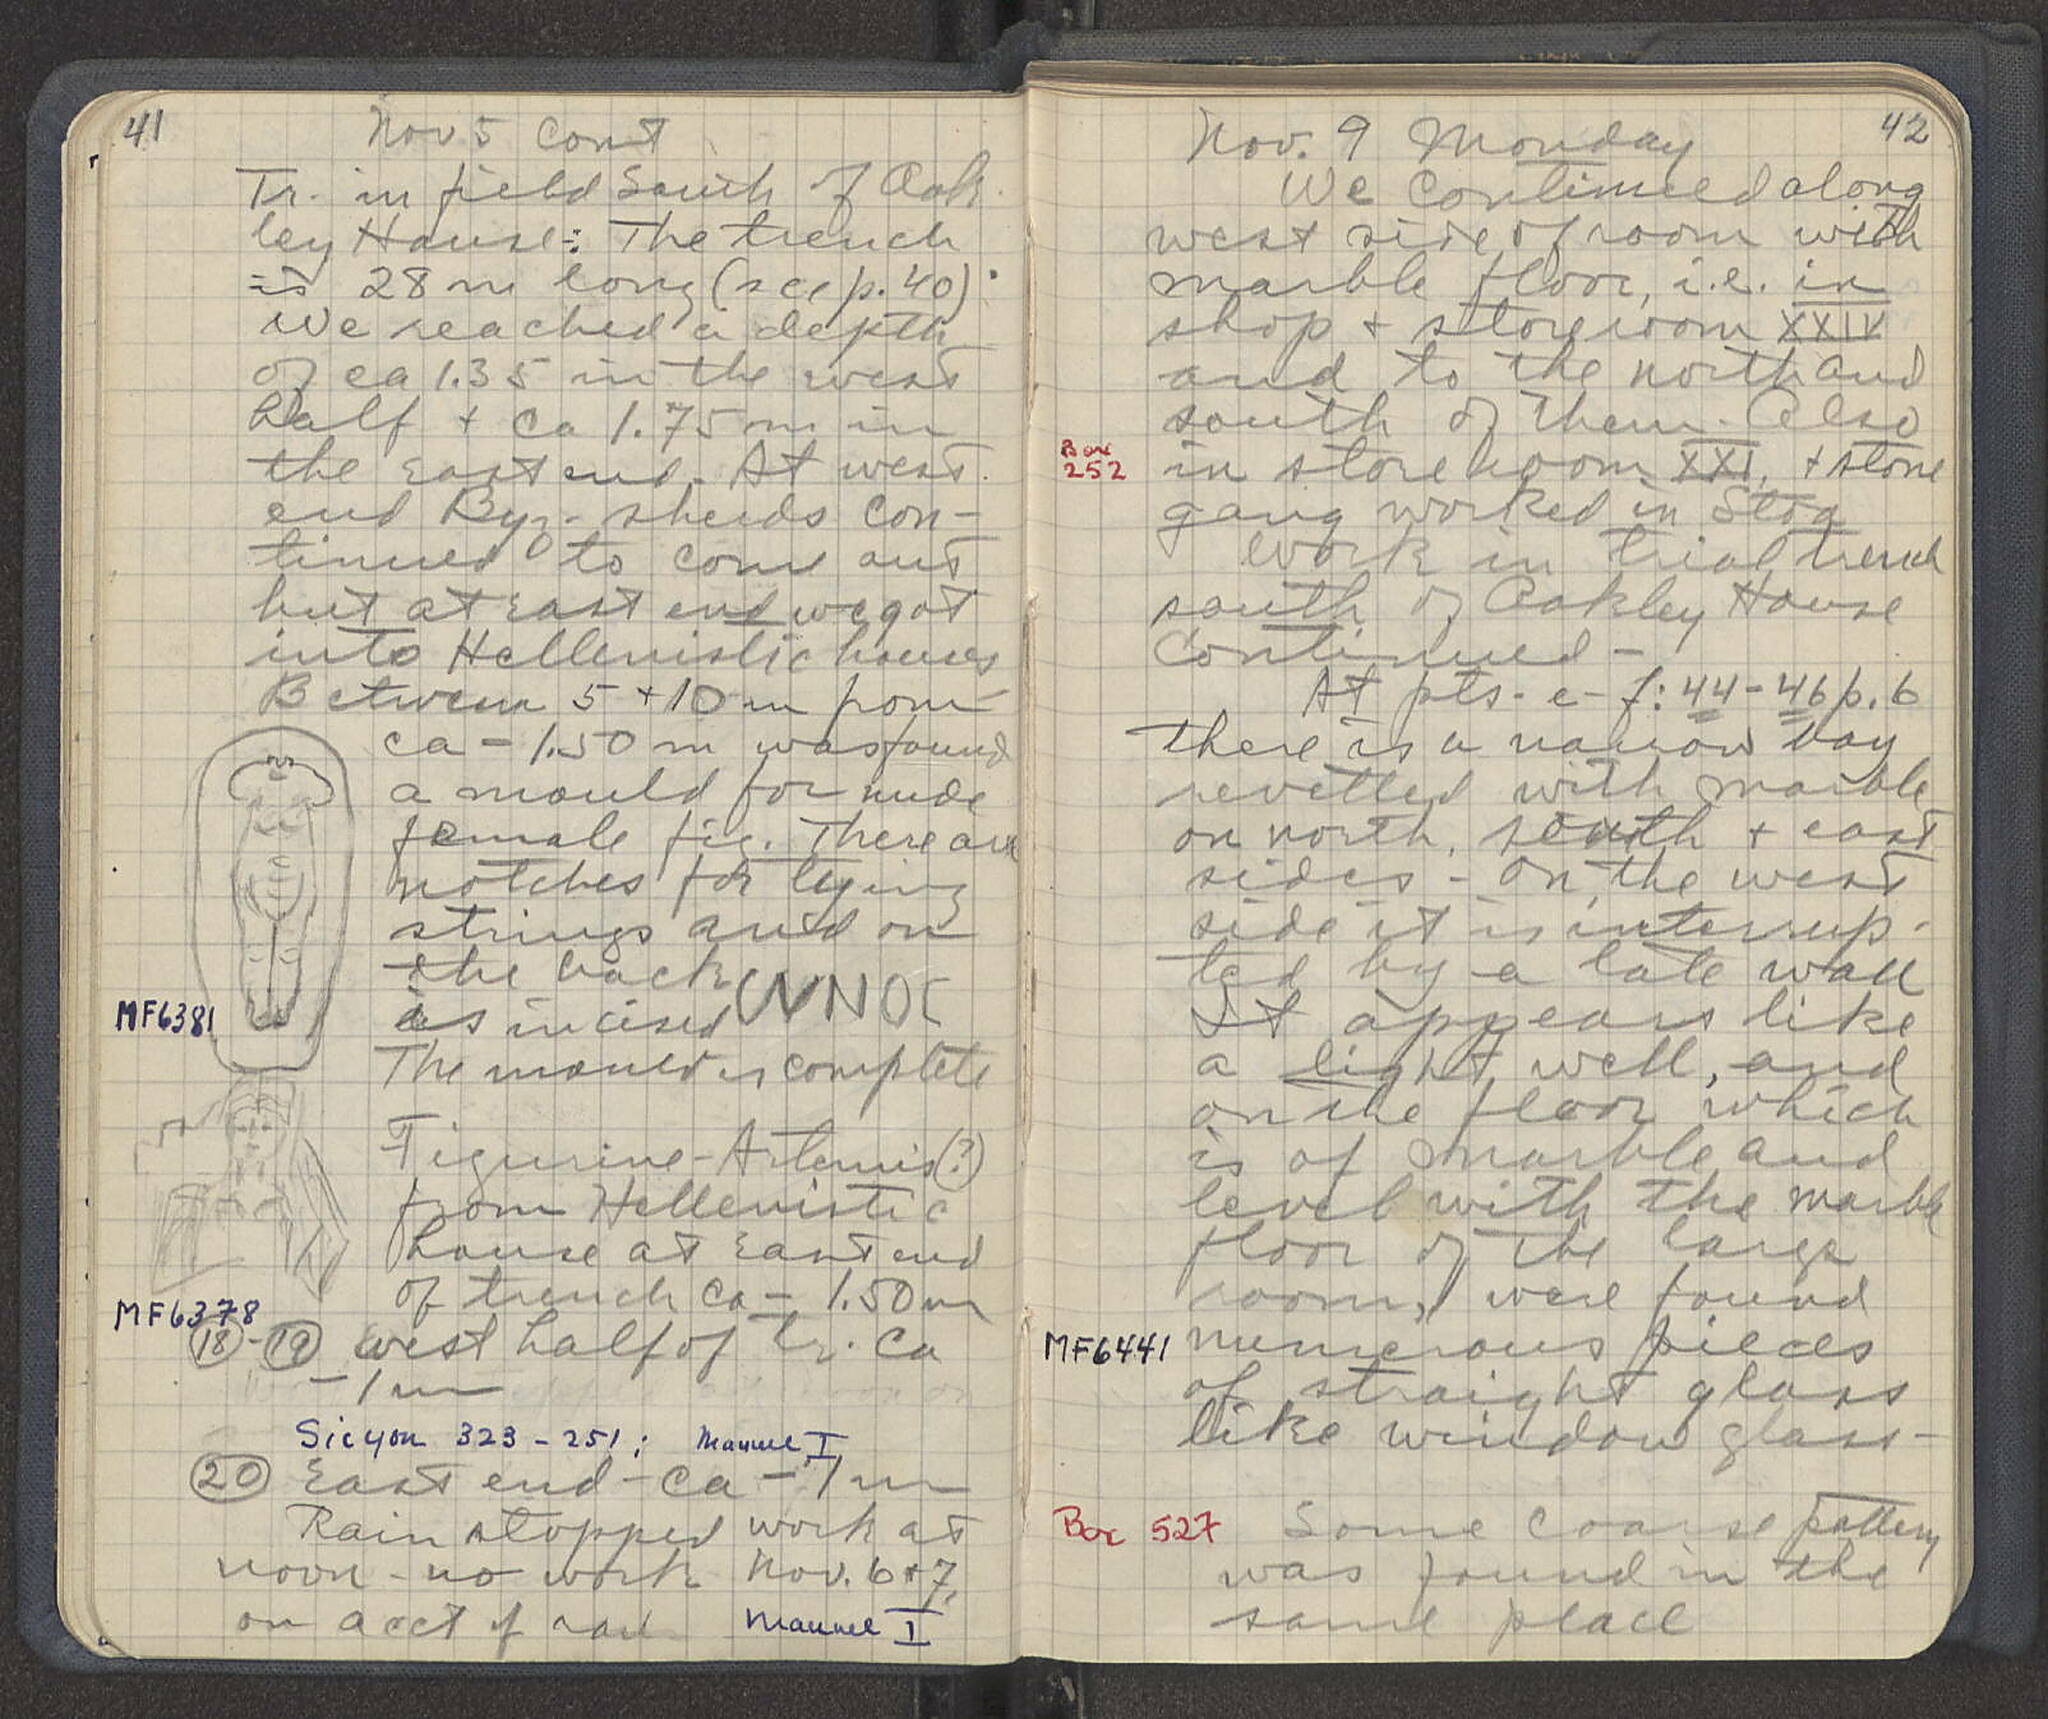 41
Nov 5 Cont
Tr. in field South of Oak-
ley House: The trench
is 28 m long (see p. 40).
We reached a depth
of ca 1.35 in the west
half + ca 1.75 m in
the East end. At west
end Byz. sherds con-
tinued to come out
but at East end we got
into Hellenistic houses
Between 5 + 10 m from
ca - 1.50 m was found
a mould for nude
female fig. There are
notches for tying
strings and on
the back WNOC
is incised
MF6381
The mould is complete
Figurine - Artemis (?)
from Hellenistic
house at East end
of trench ca - 1.50 m
MF6378
18 - 19 west half of tr. ca
- 1 m
Sicyon 323 - 251; Manuel I
20 East end - ca - 1 m
Rain stopped work at
noon - no work Nov. 6 + 7,
on acct of rain
Manuel I
42
Nov. 9 Monday
We continued along
west side of room with
marble floor, i.e. in
shop + storeroom XXIV
and to the north and
south of them. Also
Box 252
in store room XXI, + stone
gang worked in Stoa
Work in trial trench
south of Oakley House
Continued -
At pts. e - f: 44 - 46 p. 6
there is a narrow bay
revetted with marble
on north, south + east
sides - On the west
side it is interrup-
ted by a late wall
It appears like
a light well, and
on the floor which
is of marble and
level with the marble
floor of the large
room, were found
MF6441 numerous pieces
of straight glass
like window glass -
Box 527 Some coarse pottery
was found in the
same place